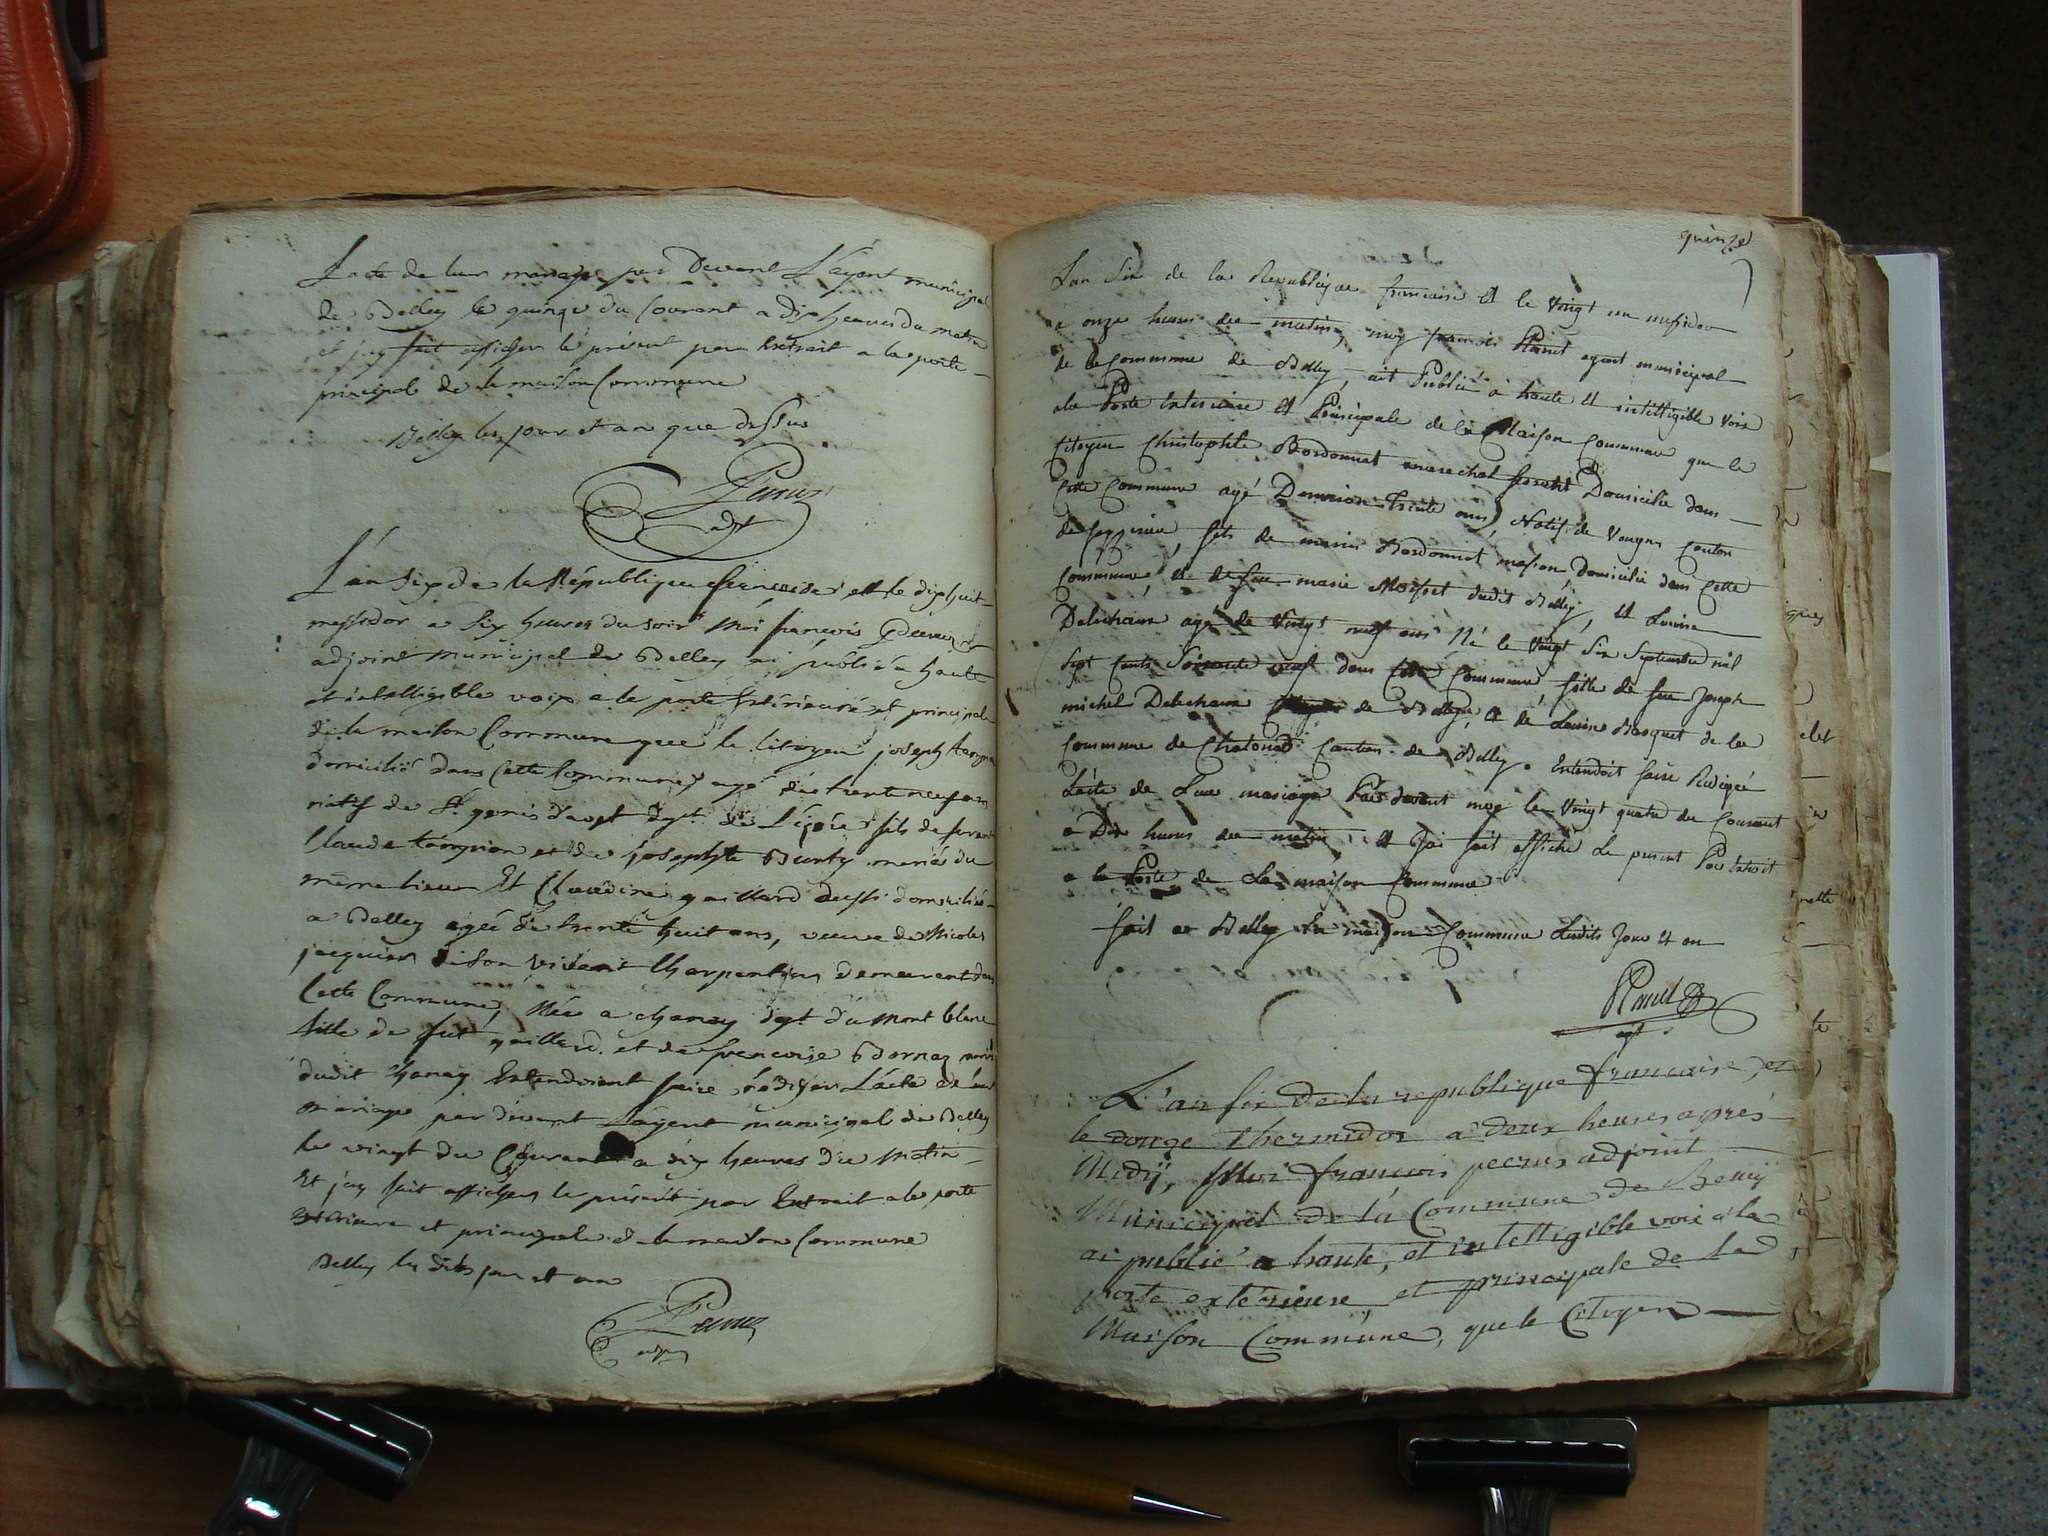 L'acte de leur mariage par devant L'agent municipal
de Belley le quinze du Courant a dix heures du matin
et j'ay fait afficher le présent par Extrait a la porte
principal de la maison Commune
Belley les jour et an que dessus
adjt
L'an six de la République française et le dix huit
messidor a six heures du soir Moi françois
adjoint municipal de Belley ai publié a haute
et intelligible voix a la porte Extérieure et principale
de la maison Commune que le Citoyen joseph
domicilié dans Cette Commune agé de trente neuf ans
natif de St. genis d'aost dpt. de L'izère fils de
Claude et de josephte mariés du
même lieu Et Claudine gaillard aussi domiciliée
a Belley agée de trente huit ans, veuve de Nicolas
jacquier a son vivant Charpentier demeurant dans
Cette Commune, Née a chanay dpt. du Mont blanc
fille de gaillard et de françoise Bornaz mariés
dudit Chanay Entendoient faire rédiger L'acte de leur
mariage par devant L'agent municipal de Belley
le vingt du Courant a dix heures du Matin
Et j'ay fait afficher le présent par Extrait a la porte
extérieure et principale de la maison Commune
Belley les dits jour et an
quinze
L'an Six de la République française et le vingt un messidor
à onze heures du matin, moy françois agent municipal
de la Commune de Belley, ait Publié à haute et intelligible voix
a la Porte Exterieure et Principale de la Maison Commune que le
Citoyen Christophle Bordonnat marechal ferrant Domicilié dans
Cette Commune agé Denviron Trente ans, Natif de Vongnes Canton
de seyssieu, fils de marin Bordonnat mason Domicilié dans Cette
Commune, et de feue marie dudit Belley, et Louise
Delachaux agé de vingt neuf ans Né le vingt Six Septembre mil
Sept Cents Soixante neuf dans Cette Commune fille de feu Joseph
michel Delachaux de Belley, et de Louise Bosquet de la
Commune de Chatonod Canton de Belley. Entendoit faire Redigée
L'acte de Leur mariage Par devant moy le vingt quatre du Courant
a Dix heures du matin, et Jai fait affiché Le present Par Extroit
a la Porte de La maison Commune
fait a Belley En maison Commune Lesdits Jour et an
agt
L'an six de la republique francaise, et
le douze Thermidor à deux heures aprés
Midÿ, Moi francois adjoint
Municipal de la Commune de Belley
ai publié a haute, et intelligible voix a la
porte extérieure, et principale de la
Maison Commune, que le Citoyen